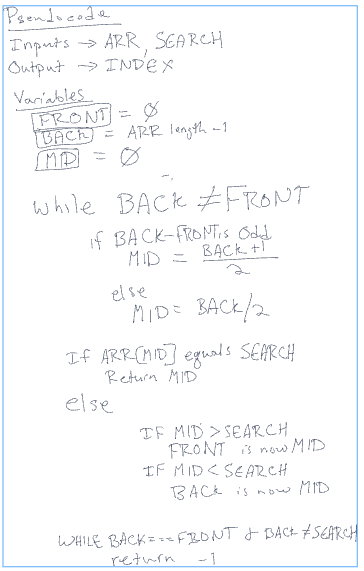 Pseudocode
Inputs → ARR, SEARCH
Output → INDEX
Variables
FRONT = Ø
BACK = ARR length -1
MID = Ø
While BACK ≠ FRONT
if BACK-FRONT is odd
MID = BACK +1
2
else
MID = BACK/2
If ARR[MID] equals SEARCH
Return MID
else
IF MID > SEARCH
FRONT is now MID
IF MID < SEARCH
BACK is now MID
WHILE BACK === FRONT & BACK ≠ SEARCH
return -1